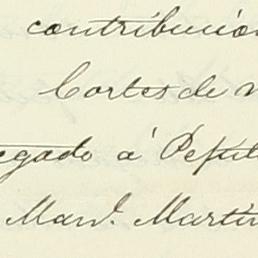 contribución
Cortes de
egado á
Man.l Martin